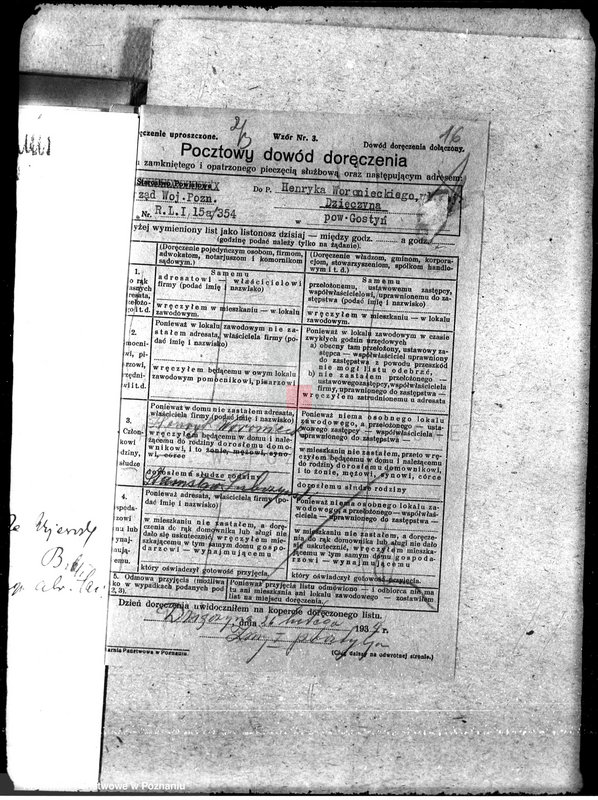 ęczenie uproszczone.
Wzór Nr. 3.
Dowód doręczenia dołączony.
16
Pocztowy dowód doręczenia
zamkniętego i opatrzonego pieczęcią służbową oraz następującym adresem:
Starostwo Powiatowe
ząd Woj.Pozn.
Do P. Henryka Woronieckiego,
Dzięczyna
Nr. R.L.I 15a/354
w pow.Gostyń
yżej wymieniony list jako listonosz dzisiaj — między godz. ........ a godz.
(godzinę podać należy tylko na żądanie).
(Doręczenie pojedyńczym osobom, firmom, adwokatom, notarjuszom i komornikom sądowym.)
(Doręczenie władzom, gminom, korporacjom, stowarzyszeniom, spółkom handlowym i t. d.)
1.
o rąk
asnych
dresata,
zełożo-
go i t. d.
Samemu
adresatowi — właścicielowi
firmy (podać imię i nazwisko)
wręczyłem w mieszkaniu — w lokalu
zawodowym.
Samemu
przełożonemu, ustawowemu zastępcy,
współwłaścicielowi, uprawnionemu do zastępstwa (podać imię i nazwisko)
wręczyłem w mieszkaniu — w lokalu
zawodowym.
2.
mocni-
wi, pi-
rzowi,
rzędni-
wi i t. d.
Ponieważ w lokalu zawodowym nie zastałem adresata, właściciela firmy (podać imię i nazwisko)
wręczyłem będącemu w owym lokalu
zawodowym pomocnikowi, pisarzowi
Ponieważ w lokalu zawodowym w czasie
zwykłych godzin urzędowych
a) obecny tam przełożony, ustawowy zastępca — współwłaściciel uprawniony
do zastępstwa z powodu przeszkód
nie mógł listu odebrać,
b) nie zastałem przełożonego —
ustawowego zastępcy, współwłaściciela
firmy, uprawnionego do zastępstwa —
wręczyłem zatrudnionemu u adresata
3.
Człon-
kowi
dziny,
słudze
Ponieważ w domu nie zastałem adresata,
właściciela firmy (podać imię i nazwisko)
wręczyłem będącemu w domu i należącemu do rodziny dorosłemu domownikowi, i to żonie, mężowi, synowi, córce
dorosłemu słudze rodziny
Ponieważ niema osobnego lokalu
zawodowego, a przełożonego — ustawowego zastępcy — współwłaściciela —
uprawnionego do zastępstwa —
w mieszkaniu nie zastałem, przeto wręczyłem będącemu w domu i należącemu
do rodziny dorosłemu domownikowi,
i to żonie, mężowi, synowi, córce
dorosłemu słudze rodziny
4.
spoda-
zowi
mu lub
ynaj-
ują-
emu.
Ponieważ adresata, właściciela firmy (podać imię i nazwisko)
w mieszkaniu nie zastałem, a doręczenia do rąk domownika lub sługi nie
dało się uskutecznić, wręczyłem mieszkającemu w tym samym domu gospodarzowi — wynajmującemu
który oświadczył gotowość przyjęcia.
Ponieważ niema osobnego lokalu zawodowego, a przełożonego — współwłaściciela — uprawnionego do zastępstwa —
w mieszkaniu nie zastałem, a doręczenia
do rąk domownika lub sługi nie dało
się uskutecznić, wręczyłem mieszkającemu w tym samym domu gospodarzowi — wynajmującemu
który oświadczył gotowość przyjęcia.
5. Odmowa przyjęcia (możliwa
ko w wypadkach podanych pod
2, 3).
Ponieważ przyjęcia listu odmówiono — i odbiorca nie ma
tu ani mieszkania ani lokalu zawodowego — zostawiłem
list na miejscu doręczenia.
Dzień doręczenia uwidoczniłem na kopercie doręczonego listu.
dnia 26 lutego 193
r.
arnia Państwowa w Poznaniu.
(Ciąg dalszy na odwrotnej stronie.)
we w Poznaniu